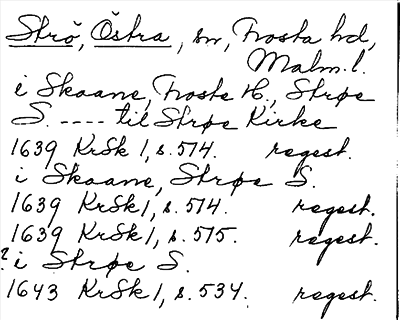 Strö, Östra, sn, Frosta hd,
Malm. l.
i Skaane, Froste H, Strøe
S. ---- til Strøe Kirke
1639 KrSk 1, s. 574. regest.
i Skaane, Strøe S.
1639 KrSk 1, s. 574. regest.
1639 KrSk 1, s. 575. regest.
? i Strøe S.
1643 KrSk 1, s. 534. regest.